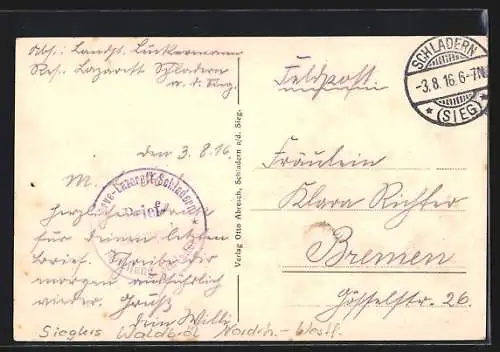 Abs.: Landst. Lückermann
Res. Lazarett Schladern
a. d. Sieg.
den 3.8.16.
M. l. Kl.
Herzlichen Dank
für deinen letzten
Brief. Schreibe dir
morgen ausführlich
wieder. Gruß
dein Willi
Sieglers Waldbröl Nordrh.-Westf.
Reserve-Lazarett Schladern
Brief
Verlag Otto Abresch, Schladern a/d. Sieg.
SCHLADERN
-3.8.16.6-7N
(SIEG)
Feldpost.
Fräulein
Klara Richter
Bremen
Gösselstr. 26.